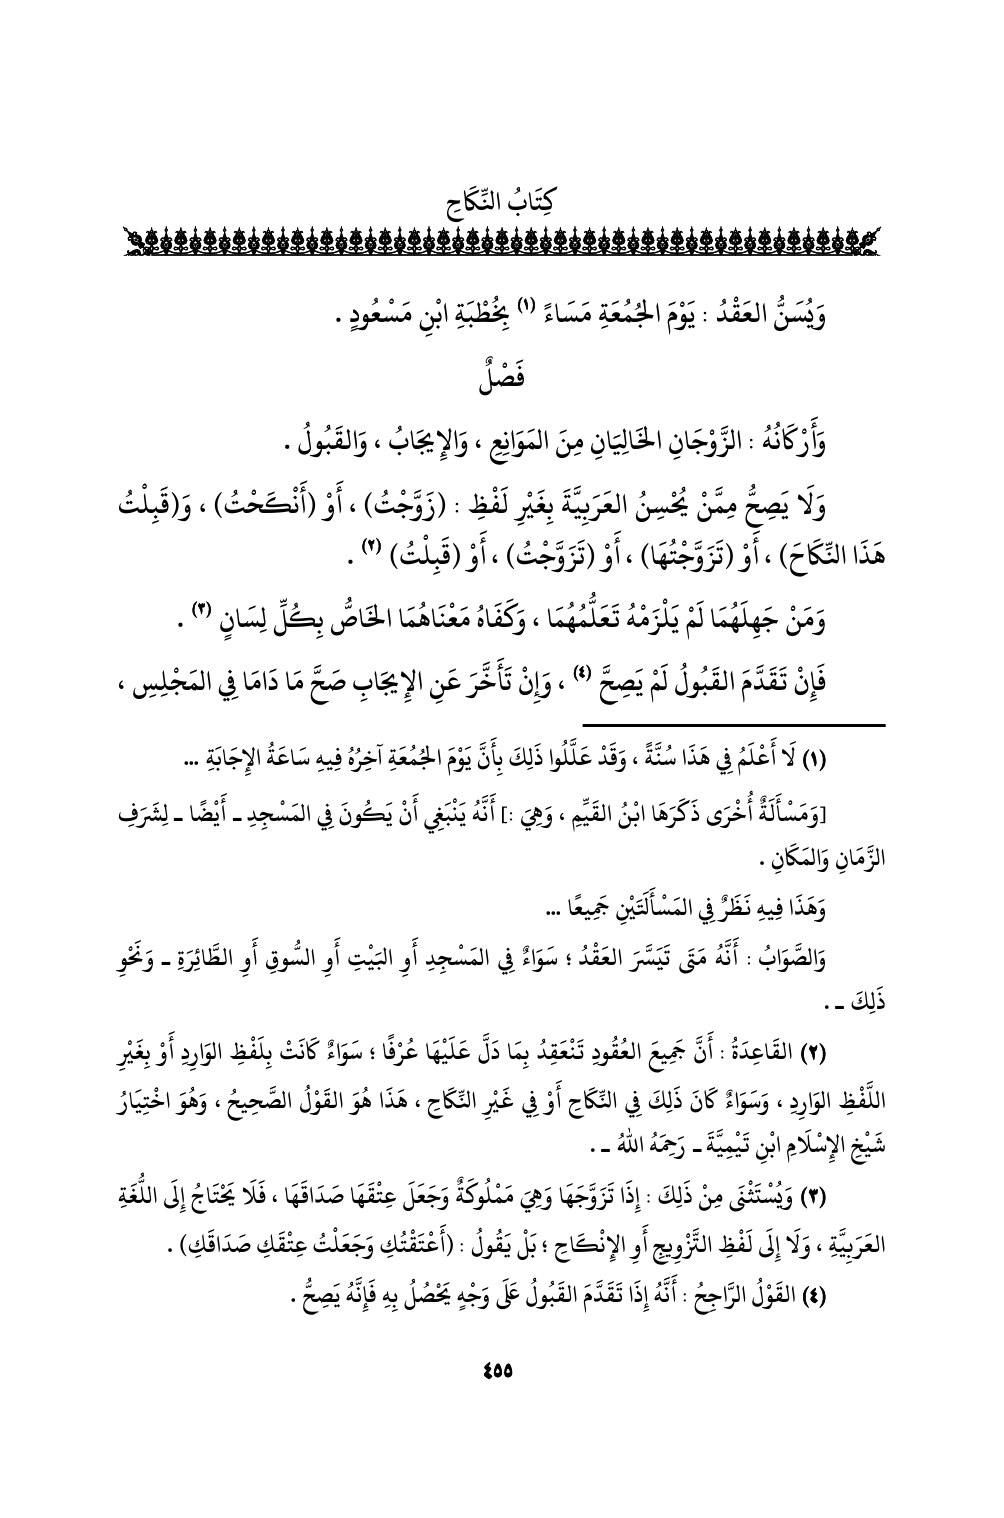 كِتَابُ النِّكَاحِ
وَيُسَنُّ العَقْدُ : يَوْمَ الجُمُعَةِ مَسَاءً (١) بِخُطْبَةِ ابْنِ مَسْعُودٍ .
فَصْلٌ
وَأَرْكَانُهُ : الزَّوْجَانِ الخَالِيَانِ مِنَ المَوَانِعِ ، وَالإِيجَابُ ، وَالقَبُولُ .
وَلَا يَصِحُّ مِمَّنْ يُحْسِنُ العَرَبِيَّةَ بِغَيْرِ لَفْظِ : (زَوَّجْتُ) ، أَوْ (أَنْكَحْتُ) ، وَ(قَبِلْتُ
هَذَا النِّكَاحَ) ، أَوْ (تَزَوَّجْتُهَا) ، أَوْ (تَزَوَّجْتُ) ، أَوْ (قَبِلْتُ) (٢) .
وَمَنْ جَهِلَهُمَا لَمْ يَلْزَمْهُ تَعَلُّمُهُمَا ، وَكَفَاهُ مَعْنَاهُمَا الخَاصُّ بِكُلِّ لِسَانٍ (٣) .
فَإِنْ تَقَدَّمَ القَبُولُ لَمْ يَصِحَّ (٤) ، وَإِنْ تَأَخَّرَ عَنِ الإِيجَابِ صَحَّ مَا دَامَا فِي المَجْلِسِ ،
(١) لَا أَعْلَمُ فِي هَذَا سُنَّةً ، وَقَدْ عَلَّلُوا ذَلِكَ بِأَنَّ يَوْمَ الجُمُعَةِ آخِرُهُ فِيهِ سَاعَةُ الإِجَابَةِ ...
[وَمَسْأَلَةٌ أُخْرَى ذَكَرَهَا ابْنُ القَيِّمِ ، وَهِيَ :] أَنَّهُ يَنْبَغِي أَنْ يَكُونَ فِي المَسْجِدِ ـ أَيْضًا ـ لِشَرَفِ
الزَّمَانِ وَالمَكَانِ .
وَهَذَا فِيهِ نَظَرٌ فِي المَسْأَلَتَيْنِ جَمِيعًا ...
وَالصَّوَابُ : أَنَّهُ مَتَى تَيَسَّرَ العَقْدُ ؛ سَوَاءٌ فِي المَسْجِدِ أَوِ البَيْتِ أَوِ السُّوقِ أَوِ الطَّائِرَةِ ـ وَنَحْوِ
ذَلِكَ ـ .
(٢) القَاعِدَةُ : أَنَّ جَمِيعَ العُقُودِ تَنْعَقِدُ بِمَا دَلَّ عَلَيْهَا عُرْفًا ؛ سَوَاءٌ كَانَتْ بِلَفْظِ الوَارِدِ أَوْ بِغَيْرِ
اللَّفْظِ الوَارِدِ ، وَسَوَاءٌ كَانَ ذَلِكَ فِي النِّكَاحِ أَوْ فِي غَيْرِ النِّكَاحِ ، هَذَا هُوَ القَوْلُ الصَّحِيحُ ، وَهُوَ اخْتِيَارُ
شَيْخِ الإِسْلَامِ ابْنِ تَيْمِيَّةَ ـ رَحِمَهُ اللهُ ـ .
(٣) وَيُسْتَثْنَى مِنْ ذَلِكَ : إِذَا تَزَوَّجَهَا وَهِيَ مَمْلُوكَةٌ وَجَعَلَ عِتْقَهَا صَدَاقَهَا ، فَلَا يَحْتَاجُ إِلَى اللُّغَةِ
العَرَبِيَّةِ ، وَلَا إِلَى لَفْظِ التَّزْوِيجِ أَوِ الإِنْكَاحِ ؛ بَلْ يَقُولُ : (أَعْتَقْتُكِ وَجَعَلْتُ عِتْقَكِ صَدَاقَكِ) .
(٤) القَوْلُ الرَّاجِحُ : أَنَّهُ إِذَا تَقَدَّمَ القَبُولُ عَلَى وَجْهٍ يَحْصُلُ بِهِ فَإِنَّهُ يَصِحُّ .
٤٥٥